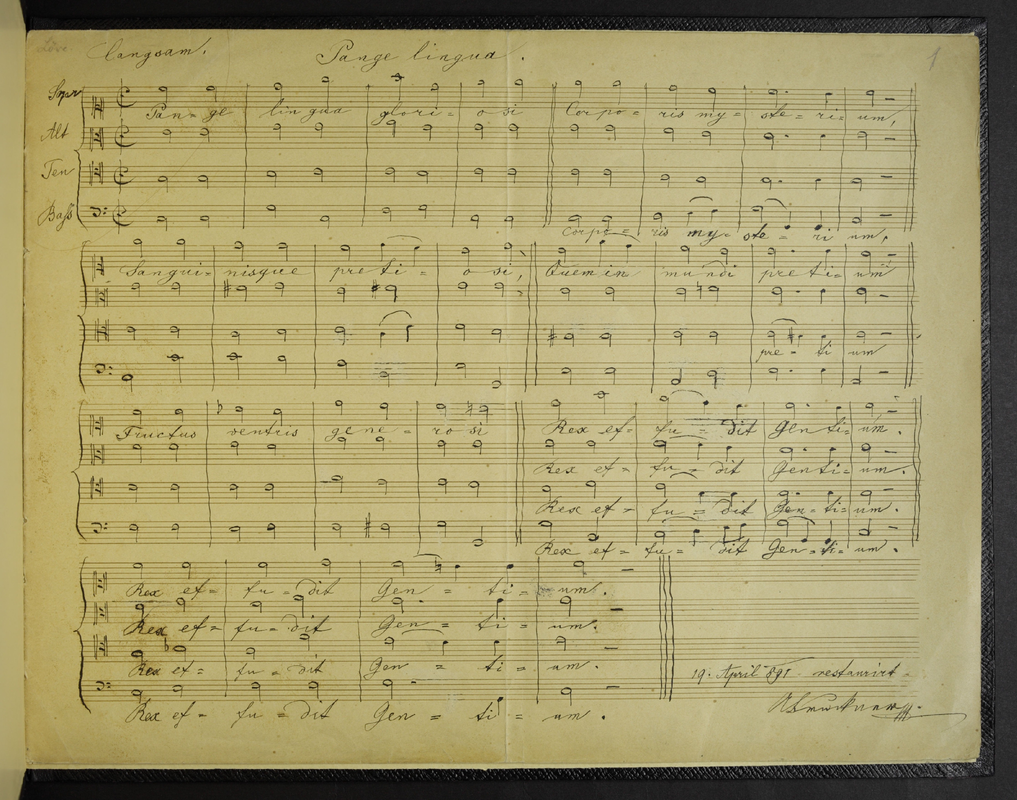 Langsam. Pange lingua. 1
Sopr
Pan= ge lin gua glori= o si Corpo= ris my= ste= ri= um,
Alt
Ten
Bass
Corpo= ris my= ste= ri um,
Sangui= nisque preti= o si, Quem in mundi preti= um
pre= ti um
Fructus ventris gene= ro si Rex ef= fu= dit Gen ti= um.
Rex ef= fu= dit Gen ti= um.
Rex ef= fu= dit Gen= ti= um.
Rex ef= fu= dit Gen= ti= um.
Rex ef= fu= dit Gen= ti= um.
Rex ef= fu= dit Gen= ti= um.
Rex ef= fu= dit Gen= ti= um.
19. April 891 restaurirt
Rex ef= fu= dit Gen= ti= um.
ABruckner